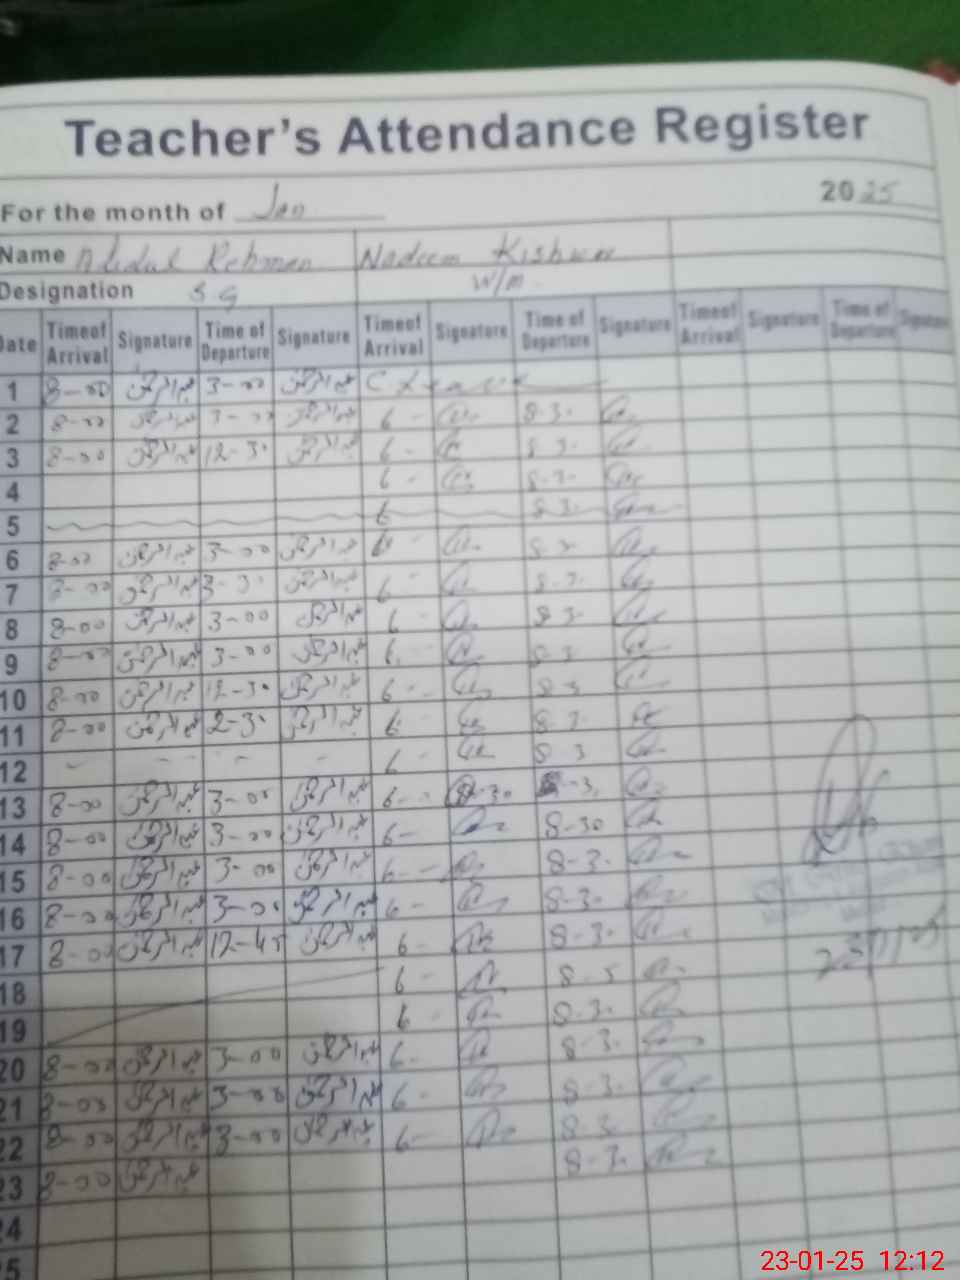 Teacher's Attendance Register
For the month of Jan 2025
Name Abdul Rehman Nadeem Kishwer
Designation S.G W/m
Date Timeof Arrival Signature Time of Departure Signature Timeof Arrival Signature Time of Departure Signature Timeof Arrival Signature Time of Departure Signature
1 8-00 عبدالرحمٰن 3-00 عبدالرحمٰن C Leave
2 8-00 عبدالرحمٰن 3-00 عبدالرحمٰن 6 - 8-30
3 8-00 عبدالرحمٰن 12-30 عبدالرحمٰن 6 - 8-30
4 6 - 8-30
5 6 8-30
6 8-00 عبدالرحمٰن 3-00 عبدالرحمٰن 6 - 8-30
7 8-00 عبدالرحمٰن 3-00 عبدالرحمٰن 6 - 8-30
8 8-00 عبدالرحمٰن 3-00 عبدالرحمٰن 6 - 8-30
9 8-00 عبدالرحمٰن 3-00 عبدالرحمٰن 6 - 8-3
10 8-00 عبدالرحمٰن 12-30 عبدالرحمٰن 6 - 8-3
11 8-00 عبدالرحمٰن 2-30 عبدالرحمٰن 6 8-30
12 - - - - 6 - 8-3
13 8-00 عبدالرحمٰن 3-00 عبدالرحمٰن 6 - -30
14 8-00 عبدالرحمٰن 3-00 عبدالرحمٰن 6 - 8-30
15 8-00 عبدالرحمٰن 3-00 عبدالرحمٰن 6 - 8-30
16 8-00 عبدالرحمٰن 3-00 عبدالرحمٰن 6 - 8-30
17 8-00 عبدالرحمٰن 12-45 عبدالرحمٰن 6 - 8-30
18 6 - 8-3
19 6 8-30
20 8-00 عبدالرحمٰن 3-00 عبدالرحمٰن 6 - 8-30
21 8-00 عبدالرحمٰن 3-00 عبدالرحمٰن 6 - 8-30
22 8-00 عبدالرحمٰن 3-00 عبدالرحمٰن 6 - 8-30
23 8-00 عبدالرحمٰن 8-30
24
25
23/1/25
23-01-25 12:12